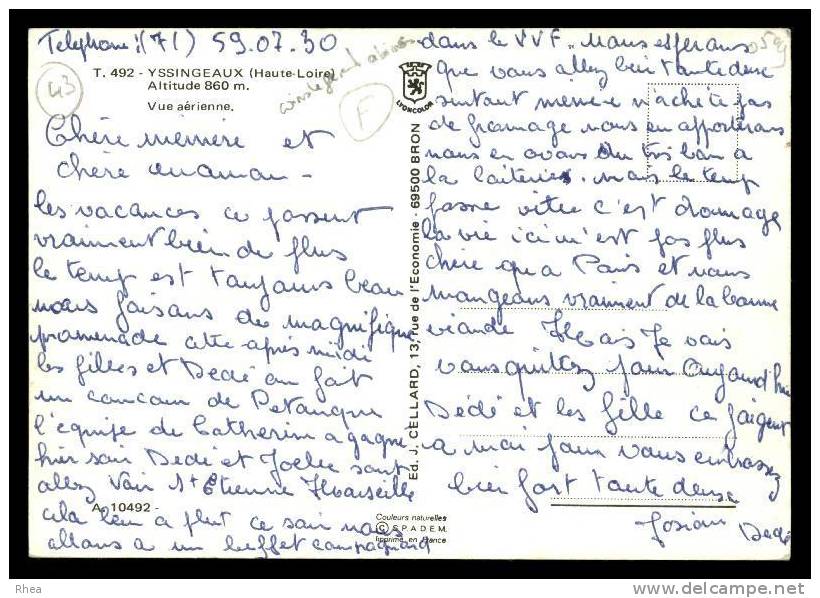 Telephone: (71) 59.07.30
43
T. 492 - YSSINGEAUX (Haute-Loire)
Altitude 860 m.
Vue aérienne.
F
LYONCOLOR
Chère mémère et
chère maman -
les vacances ce passent
vraiment bien de plus
le temps est toujours beau
nous faisons de magnifique
promenade cette après midi
les filles et Dédé on fait
un concour de Petanque
l'équipe de Catherine a gagné
hier soir Dédé et Joelle sont
allez voir St Etienne Marseille
A. 10492 -
cela leu a plut ce soir nous
allons a un buffet campagnard
Ed. J. CELLARD, 13, rue de l'Economie - 69500 BRON
Couleurs naturelles
© S.P.A.D.E.M.
Imprimé en France
dans le VVF. Nous esperons
que vous allez bien toute deux
surtout mémère n'achète pas
de fromage nous en apporterons
nous en avons du tres bon a
la laiterie. mais le temp
passe vitee c'est domage
la vie ici n'est pas plus
chère qu'a Paris et nous
mangeons vraiment de la bonne
viande Mais Je vais
vous quittez pour Aujourd'hui
Dédé et les fille ce joigent
a moi pour vous embrassez
bien fort toute deux
Josiane Dédé
Rhea
www.delcampe.net